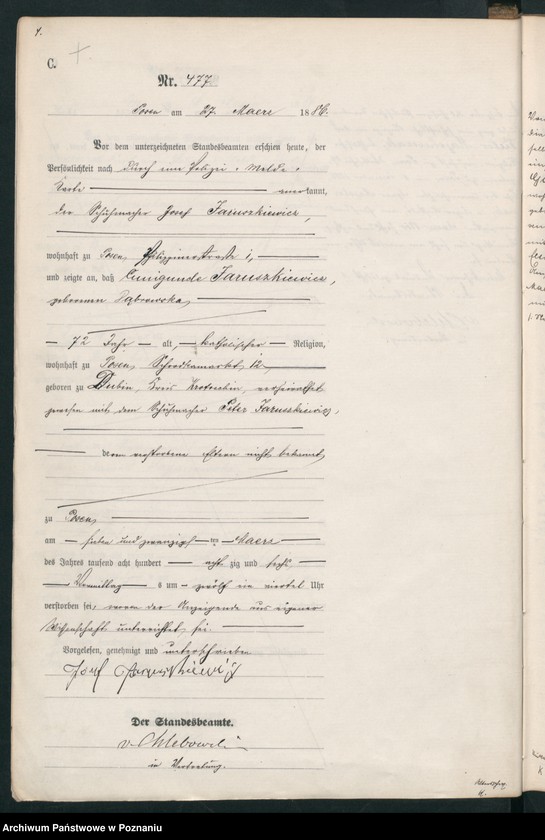 C.
Nr. 477.
Posen am 27. Maerz 1886.
Vor dem unterzeichneten Standesbeamten erschien heute, der
Persönlichkeit nach durch eine Polizei-Melde-
Karte anerkannt,
der Schuhmacher Josef Jaruszkiewicz,
wohnhaft zu Posen, Philippinerstraße 1,
und zeigte an, daß Cunigunde Jaruszkiewicz,
geborenen Dąbrowska,
72 Jahr alt, katholischer Religion,
wohnhaft zu Posen, Schrodkamarkt 12,
geboren zu Dubin, Kreis Kroeben, verheirathet
gewesen mit dem Schuhmacher Peter Jaruszkiewicz,
deren verstorbene Eltern nicht bekannt,
zu Posen,
am sieben und zwanzigsten Maerz
des Jahres tausend acht hundert achtzig und sechs,
Vormittags um zwölf ein viertel Uhr
verstorben sei, wovon der Anzeigende aus eigener
Wissenschaft unterrichtet sei.
Vorgelesen, genehmigt und unterschrieben
Josef Jaruszkiewicz
Der Standesbeamte.
v. Chlebowski
in Vertretung.
Archiwum Państwowe w Poznaniu